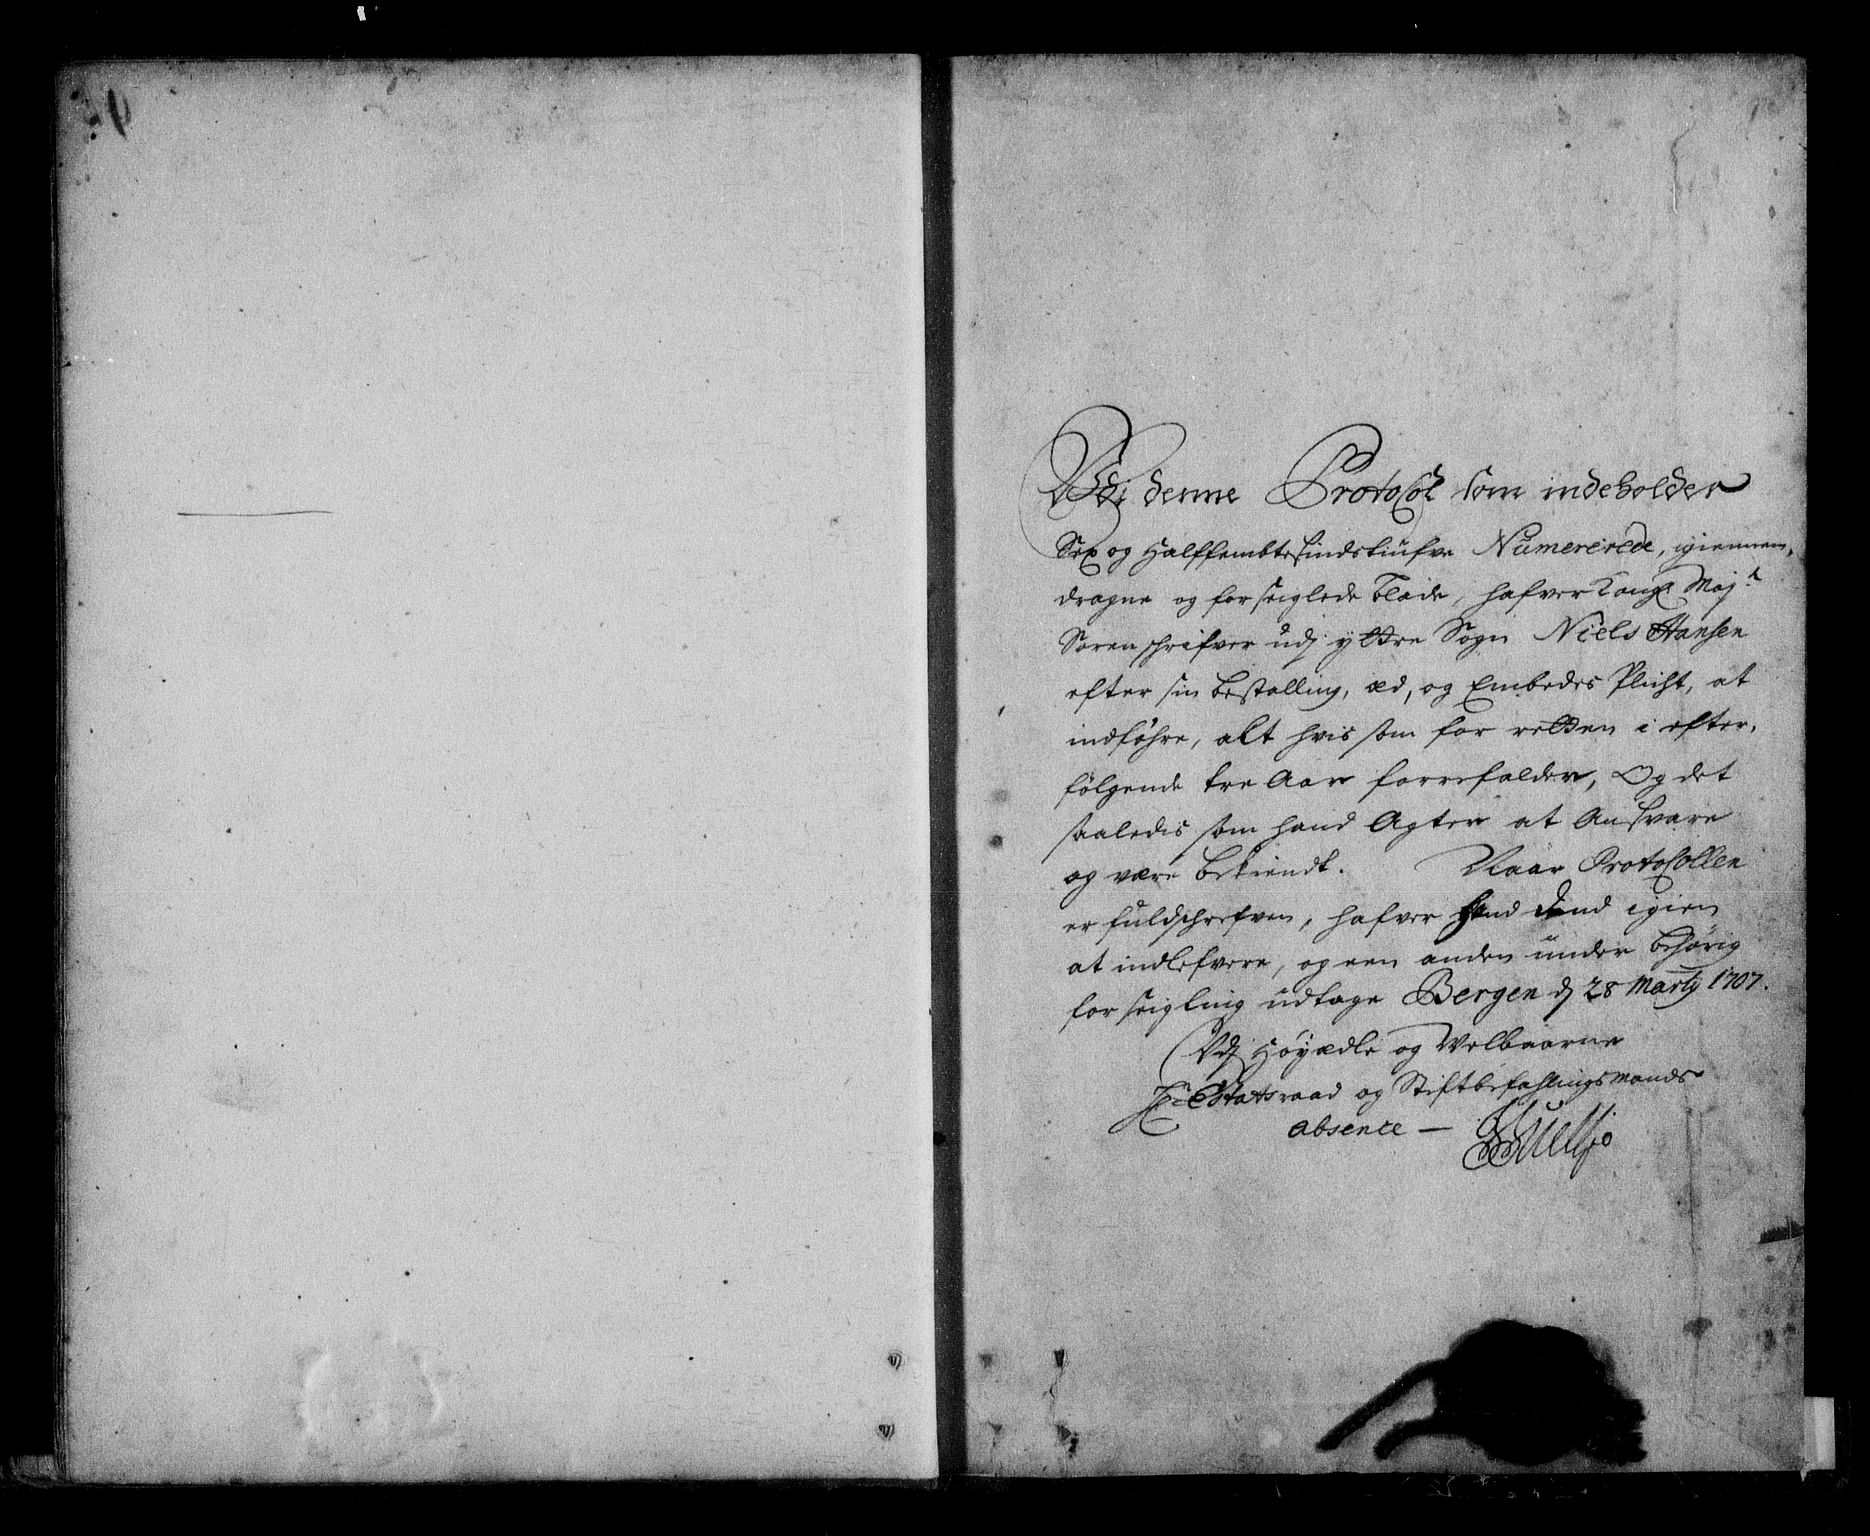 Udj denne Protocol som indeholder
Sex og Halffembtesindstiufve Numererede, igiennem,
dragne og forseiglede blade, hafver Kongl Maj.t
Sorenschrifver udj yttre Sogn Niels Hansen
efter sin bestalling, æd, og Embedes Plicht, at
indføhre, alt hvis som for retten i efter,
følgende tre Aar forrefalder, Og det
saaledis som hand Agter at Ansvare
og være bekiendt. Naar Protocollen
er fuldschrefven, hafver hand dend igien
at indlefvere, og een anden under behørig
forseigling udtage Bergen dj 28 Martij 1707.
Udj Høyædle og Welbaarne
Hr Etatsraad og Stiftbefahlingsmands
absence —